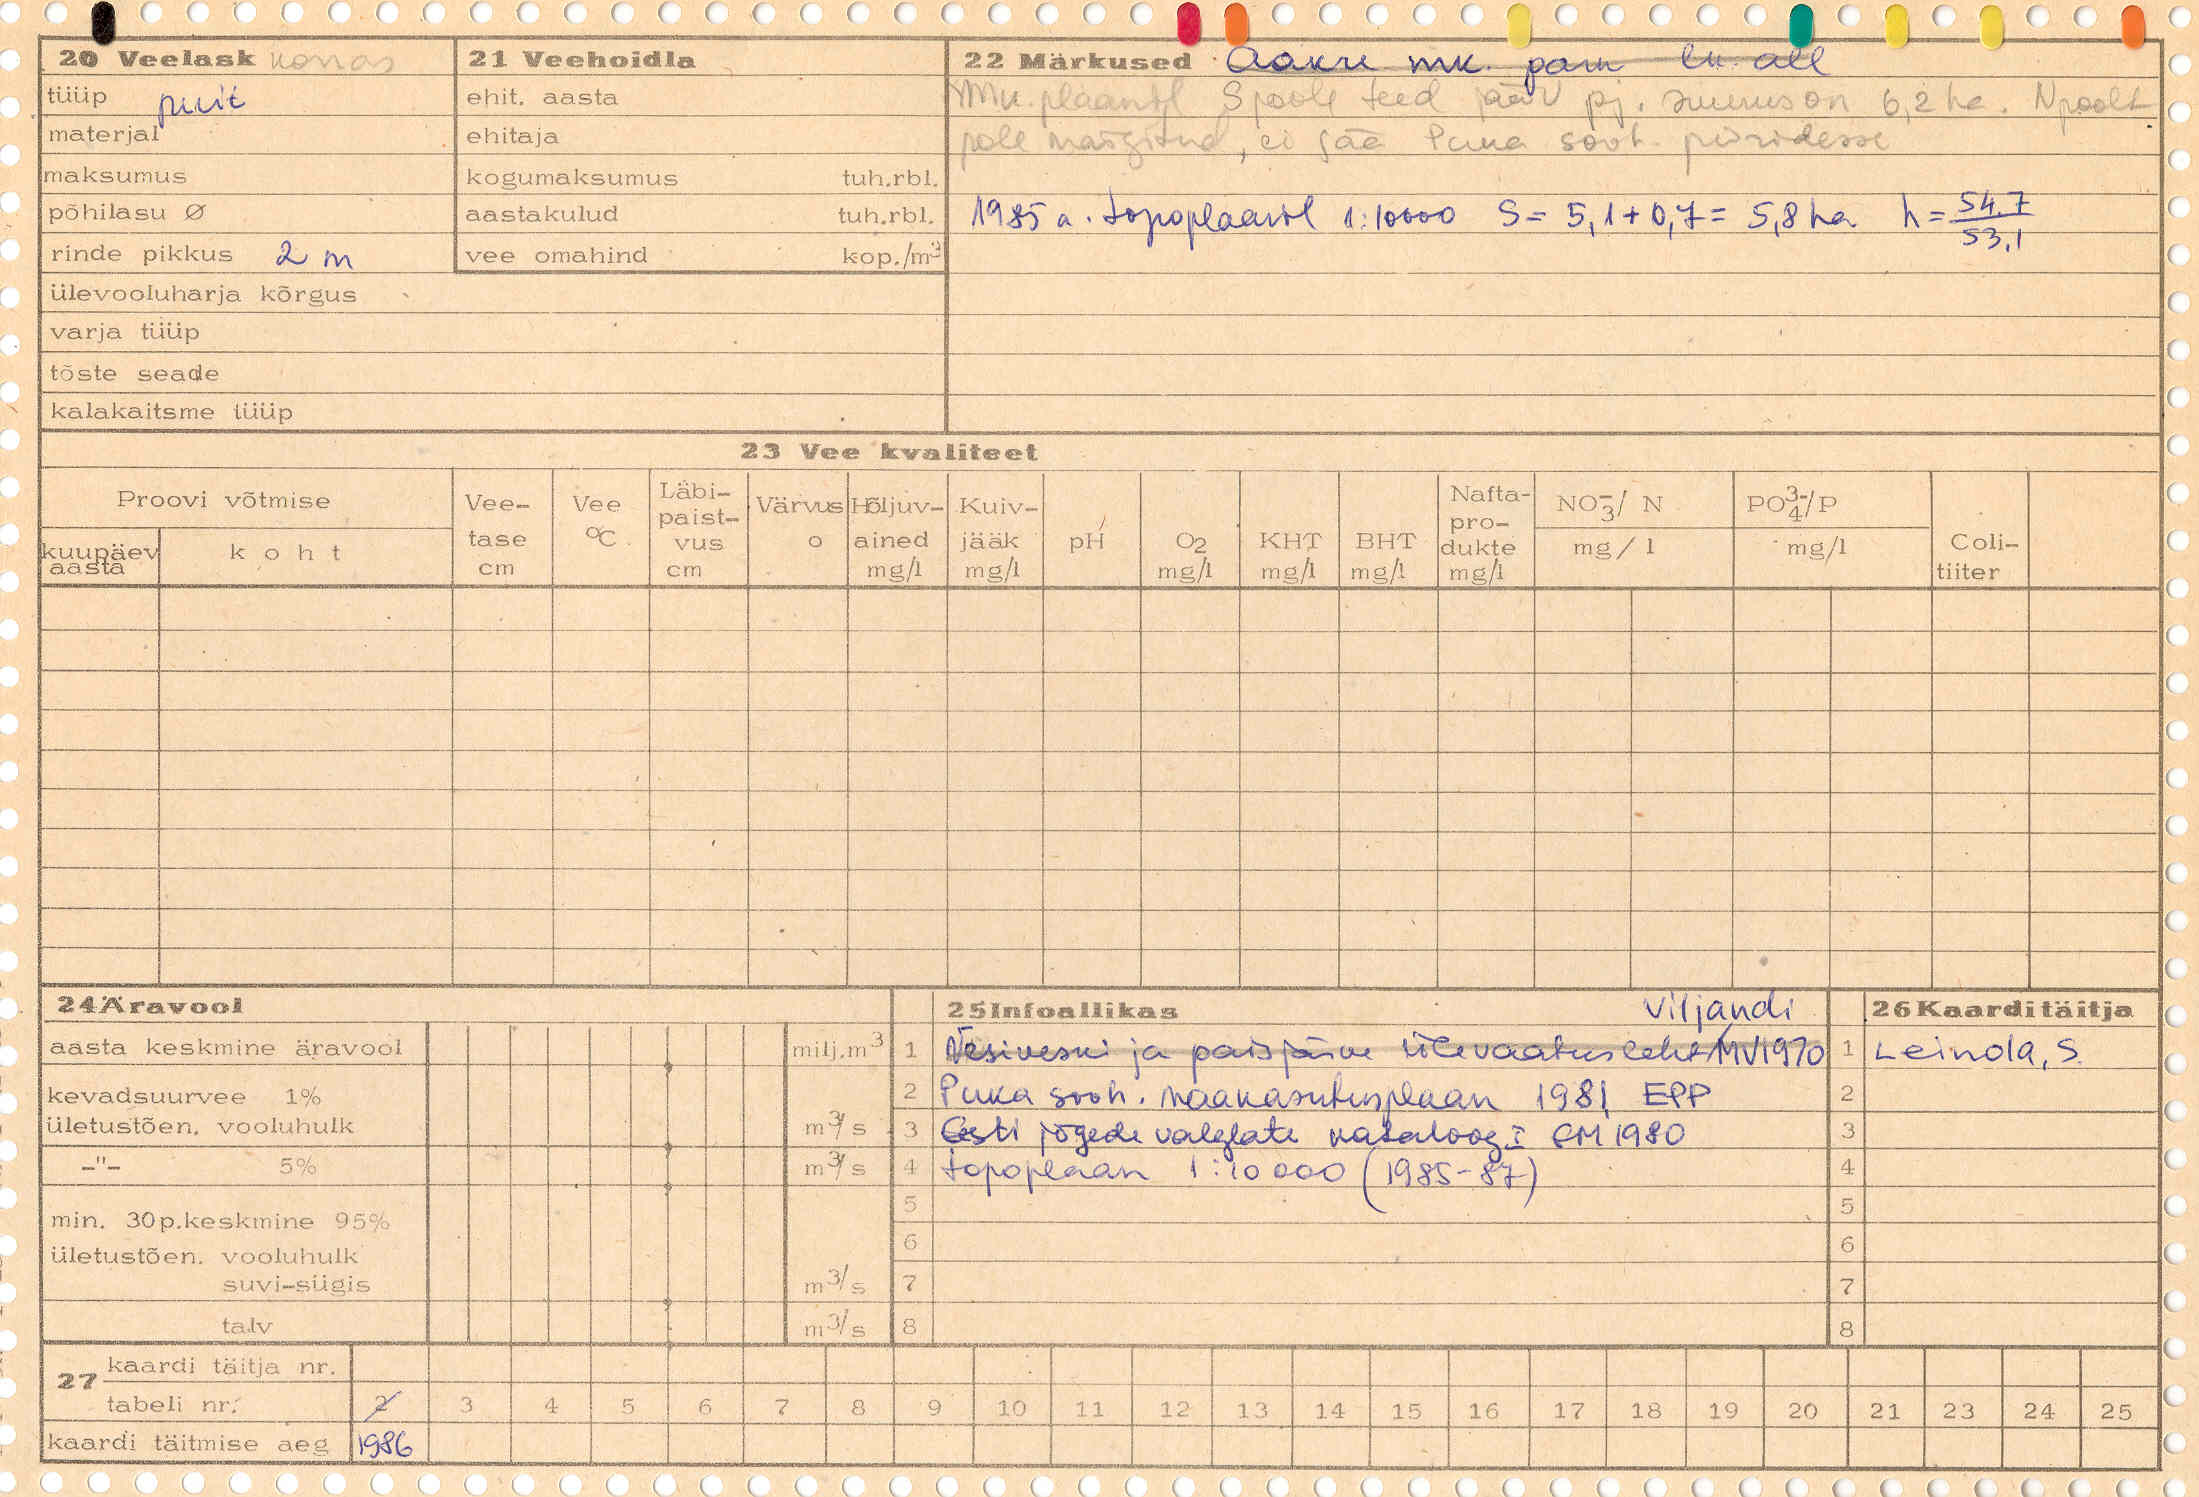 20 Veelask korras
tüüp puit
materjal
maksumus
põhilasu Ø
rinde pikkus 2 m
ülevooluharja kõrgus
varja tüüp
tõste seade
kalakaitsme tüüp
21 Veehoidla
ehit. aasta
ehitaja
kogumaksumus tuh.rbl.
aastakulud tuh.rbl.
vee omahind kop./m³
22 Märkused Aakre mk. pais
Mk. plaanil S poole teed jääv pj. suurus on 6,2 ha. N poolt
pole märgitud, ei jää Puka sovh. piiridesse
1985 a. topoplaanil 1:10000 S = 5,1 + 0,7 = 5,8 ha h = 54.7
53,1
23 Vee kvaliteet
Proovi võtmise
kuupäev
aasta
koht
Vee-
tase
cm
Vee
°C
Läbi-
paist-
vus
cm
Värvus
o
Hõljuv-
ained
mg/l
Kuiv-
jääk
mg/l
pH
O2
mg/l
KHT
mg/l
BHT
mg/l
Nafta-
pro-
dukte
mg/l
NO₃⁻/ N
mg/l
PO₄³⁻/P
mg/l
Coli-
tiiter
24 Äravool
aasta keskmine äravool milj.m³
kevadsuurvee 1%
ületustõen. vooluhulk m³/s
-"- 5% m³/s
min. 30p.keskmine 95%
ületustõen. vooluhulk
suvi-sügis m³/s
talv m³/s
25 Infoallikas Viljandi
1 Vesiveski ja paisjärve ülevaatusleht MV 1970
2 Puka sovh. maakasutusplaan 1981 EPP
3 Eesti jõgede valglate kataloog I EM 1980
4 topoplaan 1:10 000 (1985-87)
5
6
7
8
26 Kaardi täitja
1 Leinola, S.
2
3
4
5
6
7
8
27 kaardi täitja nr.
tabeli nr. 2 3 4 5 6 7 8 9 10 11 12 13 14 15 16 17 18 19 20 21 23 24 25
kaardi täitmise aeg 1986